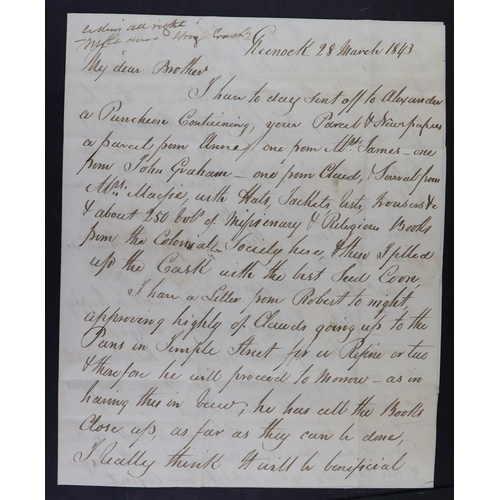 all right
Greenock 28 March 1843
My dear Brother
I have to day sent off to Alexander
a Puncheon Containing, your Parcel & Newspapers
a parcel from Anne, one from Mrs. James - one
from John Graham - one from Claud, & Several from
Mrs. Macfie, with Hats, Jackets, trousers &c
& about 250 vols. of Missionary & Religious Books
from the Colonial Society here, & then I filled
up the Cask with the best Seed Corn.
I have a Letter from Robert to night,
approving highly of Clauds going up to the
Pans in Temple Street for a Refine or two
& therefore he will proceed to Morrow - as in
having this in view, he has all the Books
Close up, as far as they can be done,
I really think it will be beneficial